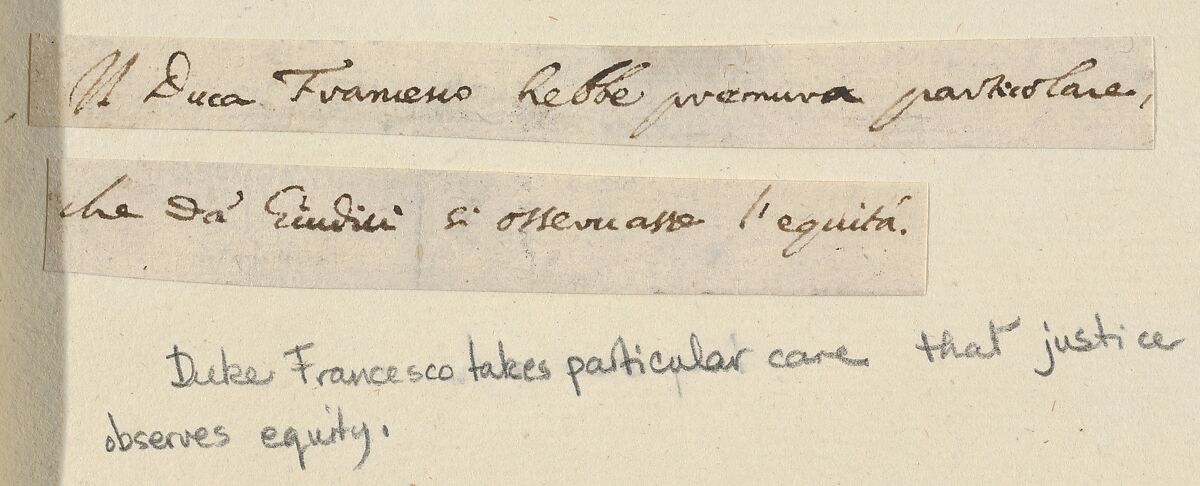 Il Duca Francesco hebbe premura particolare,
che da' Giudici si osseruasse l'equità.
Duke Francesco takes particular care that justice
observes equity.